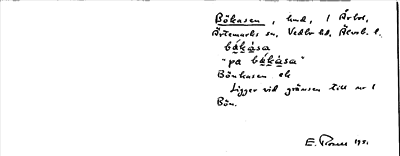 Bökasen, hmd, 1 Årbol,
Ärtemarks sn, Vedbo hd, Älvsb. l.
båkåsa
"på båkåsa"
Bönkasen ek
Ligger vid gränsen till nr 1
Bön.
E. 1931